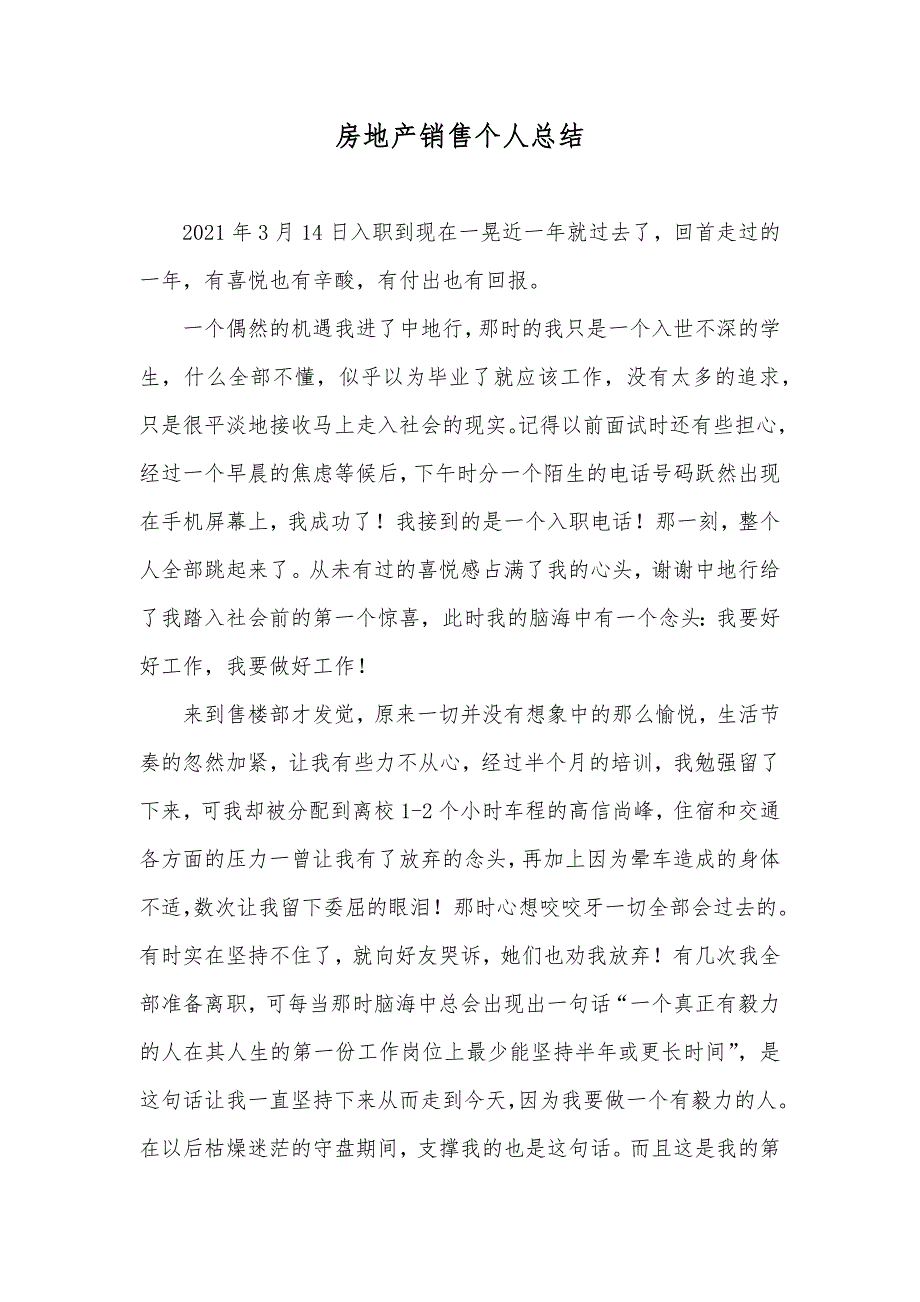 房地产销售个人总结
2021 年 3 月 14 日入职到现在一晃近一年就过去了，回首走过的
一年，有喜悦也有辛酸，有付出也有回报。
一个偶然的机遇我进了中地行，那时的我只是一个入世不深的学
生，什么全部不懂，似乎以为毕业了就应该工作，没有太多的追求，
只是很平淡地接收马上走入社会的现实。记得以前面试时还有些担心，
经过一个早晨的焦虑等候后，下午时分一个陌生的电话号码跃然出现
在手机屏幕上，我成功了！我接到的是一个入职电话！那一刻，整个
人全部跳起来了。从未有过的喜悦感占满了我的心头，谢谢中地行给
了我踏入社会前的第一个惊喜，此时我的脑海中有一个念头：我要好
好工作，我要做好工作！
来到售楼部才发觉，原来一切并没有想象中的那么愉悦，生活节
奏的忽然加紧，让我有些力不从心，经过半个月的培训，我勉强留了
下来，可我却被分配到离校 1-2 个小时车程的高信尚峰，住宿和交通
各方面的压力一曾让我有了放弃的念头，再加上因为晕车造成的身体
不适，数次让我留下委屈的眼泪！那时心想咬咬牙一切全部会过去的。
有时实在坚持不住了，就向好友哭诉，她们也劝我放弃！有几次我全
部准备离职，可每当那时脑海中总会出现出一句话“一个真正有毅力
的人在其人生的第一份工作岗位上最少能坚持半年或更长时间”，是
这句话让我一直坚持下来从而走到今天，因为我要做一个有毅力的人。
在以后枯燥迷茫的守盘期间，支撑我的也是这句话。而且这是我的第